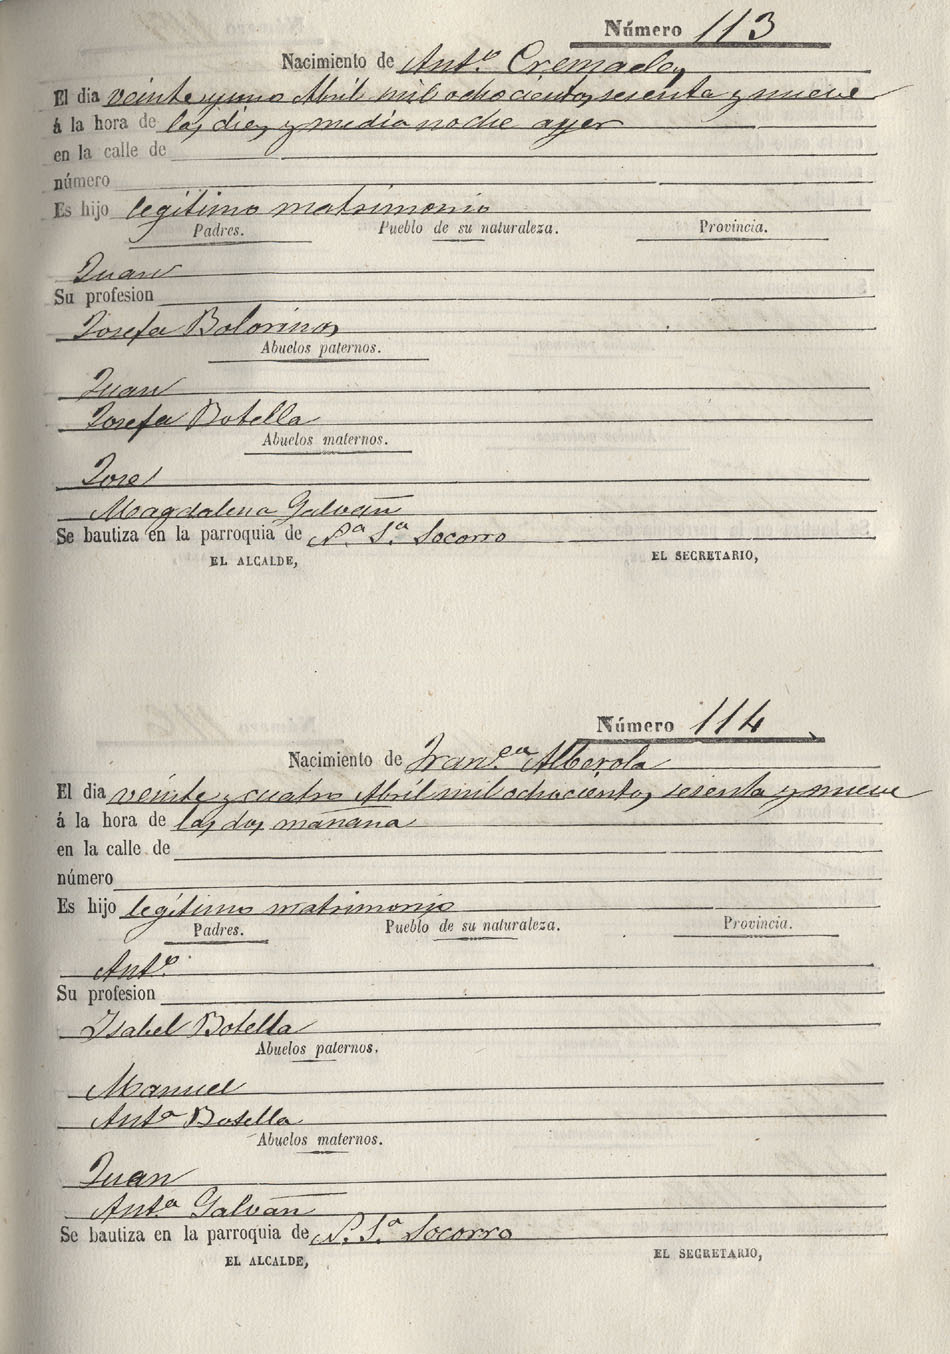 Número 113
Nacimiento de Antº Cremades
El dia veinte y uno Abril mil ochocientos sesenta y nueve
á la hora de las diez y media noche ayer
en la calle de
número
Es hijo legítimo matrimonio
Padres. Pueblo de su naturaleza. Provincia.
Juan
Su profesion
Josefa Bolorinos
Abuelos paternos.
Juan
Josefa Botella
Abuelos maternos.
José
Magdalena Galvañ
Se bautiza en la parroquia de Nª Sª Socorro
EL ALCALDE, EL SECRETARIO,
Número 114
Nacimiento de Franca Alberola
El dia veinte y cuatro Abril mil ochocientos sesenta y nueve
á la hora de las dos mañana
en la calle de
número
Es hijo legítimo matrimonio
Padres. Pueblo de su naturaleza. Provincia.
Antº
Su profesion
Isabel Botella
Abuelos paternos.
Manuel
Antª Botella
Abuelos maternos.
Juan
Antª Galvañ
Se bautiza en la parroquia de N. Sª Socorro
EL ALCALDE, EL SECRETARIO,